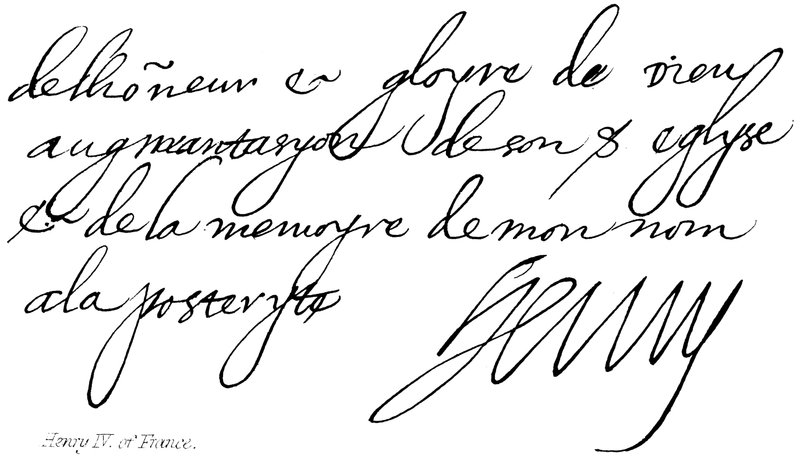 delhoñeur & gloyre de dieu
augmantasyon de son eglyse
& de la memoyre de mon nom
a la posteryte Henry
Henry IV. of France.